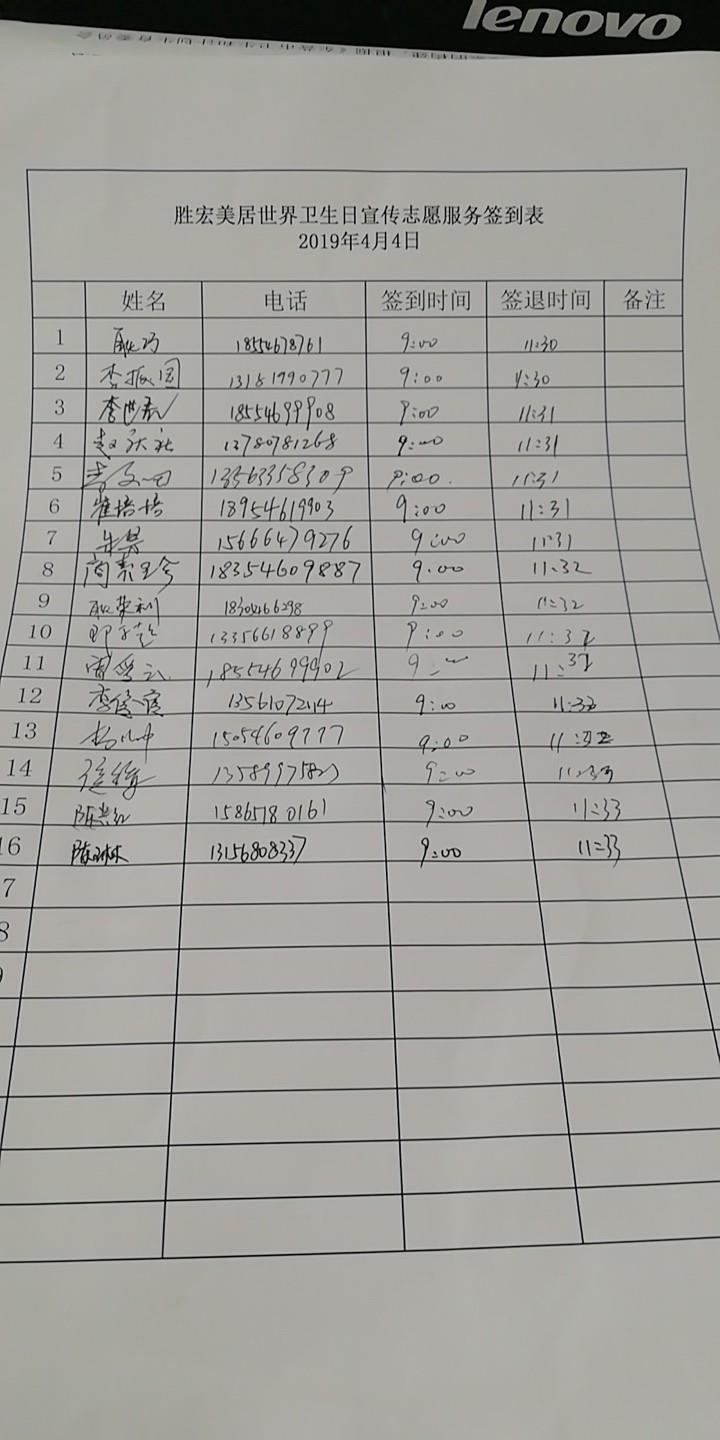 lenovo
胜宏美居世界卫生日宣传志愿服务签到表
2019年4月4日
姓名 电话 签到时间 签退时间 备注
1 耿巧 18554678761 9:00 11:30
2 李振国 13181990777 9:00 11:30
3 李世君 18554699908 9:00 11:31
4 13780781268 9:00 11:31
5 13563358309 9:00 11:31
6 崔培培 18954619903 9:00 11:31
7 朱昊 15666479276 9:00 11:31
8 18354609887 9:00 11:32
9 耿荣利 9:00 11:32
10 13356618899 9:00 11:32
11 18554699902 9:00 11:32
12 李俊霞 13561072114 9:00 11:32
13 15054609777 9:00 11:32
14 9:00 11:33
15 陈兰红 15865180161 9:00 11:33
16 陈琳琳 13156808337 9:00 11:33
7
8